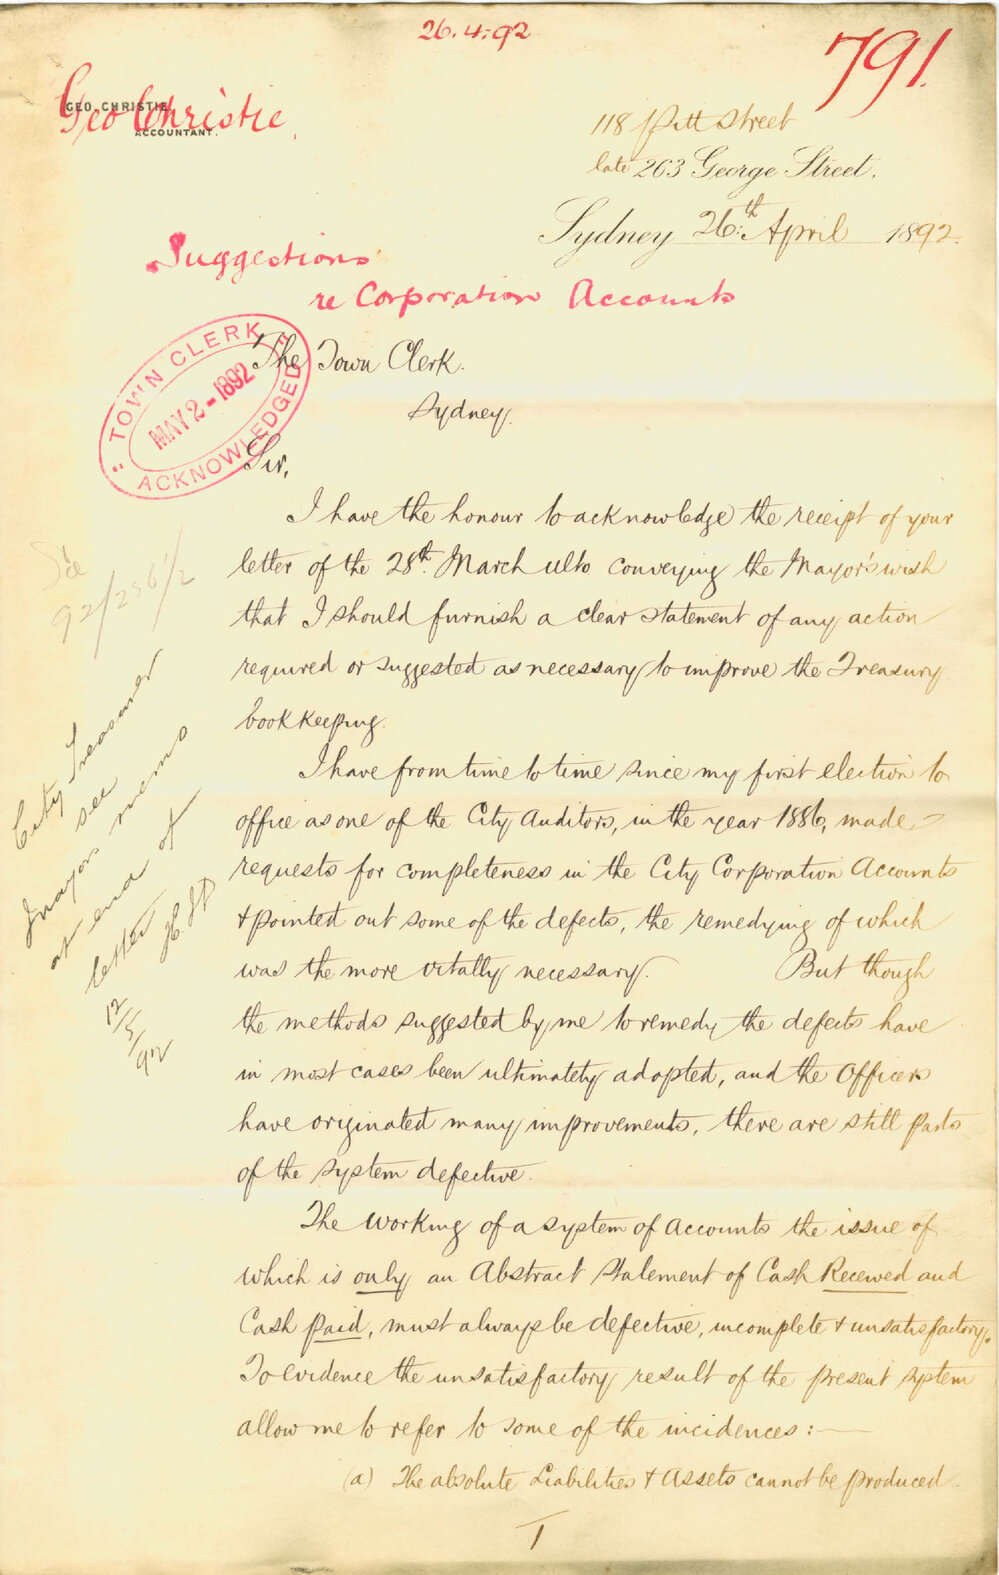 26.4.92
791.
GEO. CHRISTIE,
ACCOUNTANT.
Geo Christie,
118 Pitt Street
late 263 George Street.
Sydney 26th April 1892.
Suggestions
re Corporation Accounts
TOWN CLERK
MAY 2-1892
ACKNOWLEDGED
The Town Clerk.
Sydney.
Sir,
I have the honour to acknowledge the receipt of your
letter of the 28th March ulto conveying the Mayor's wish
that I should furnish a clear statement of any action
required or suggested as necessary to improve the Treasury
bookkeeping.
I have from time to time since my first election to
office as one of the City Auditors, in the year 1886, made
requests for completeness in the City Corporation Accounts
& pointed out some of the defects, the remedying of which
was the more vitally necessary. But though
the methods suggested by me to remedy the defects have
in most cases been ultimately adopted, and the Officers
have originated many improvements, there are still parts
of the system defective.
The working of a system of accounts the issue of
which is only an Abstract Statement of Cash Received and
Cash paid, must always be defective, incomplete & unsatisfactory.
To evidence the unsatisfactory result of the present system
allow me to refer to some of the incidences:—
(a) The absolute Liabilities & Assets cannot be produced.
1
City Treasurer
see
Mayors memo
at end of
letter
12/5/92